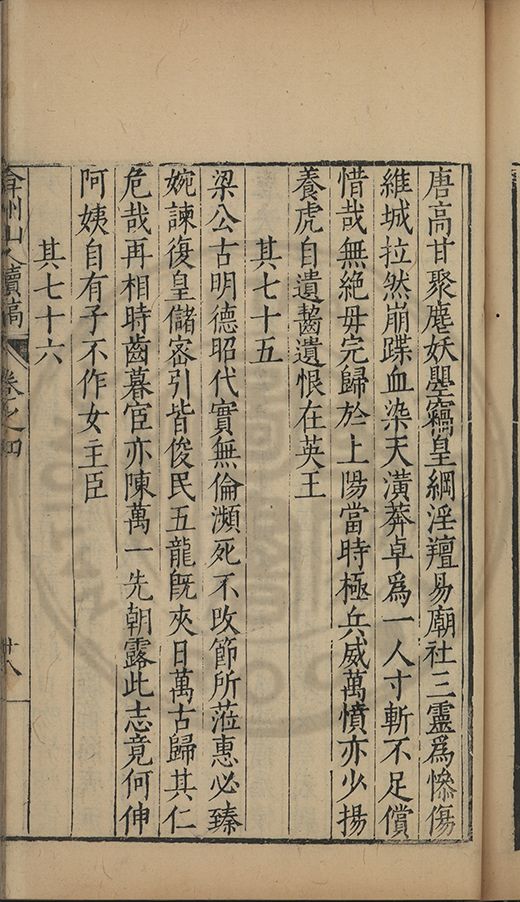 唐高甘聚麀妖曌竊皇綱淫羶易廟社三靈爲慘傷
維城拉然崩蹀血染天潢莽卓爲一人寸斬不足償
惜哉無絕毋完歸於上陽當時極兵威萬憤亦少揚
養虎自遺齧遺恨在英王
其七十五
梁公古明德昭代實無倫瀕死不攺節所蒞惠必臻
婉諫復皇儲密引皆俊民五龍旣夾日萬古歸其仁
危哉再相時齒暮宦亦陳萬一先朝露此志竟何伸
阿姨自有子不作女主臣
其七十六
弇州山人續稿 卷之四 廿八